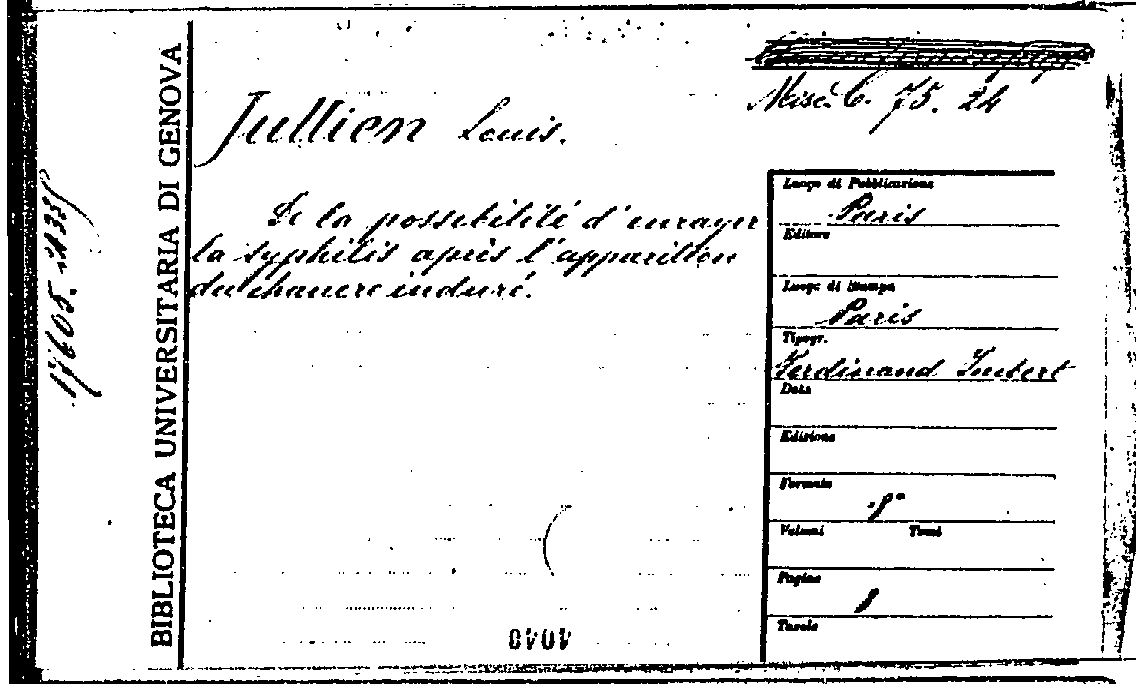 Misc. C. 75. 24
Jullien Louis.
De la possibilité d'enrayer
la syphilis après l'apparition
du chancre induré.
BIBLIOTECA UNIVERSITARIA DI GENOVA
Luogo di Pubblicazione
Paris
Editore
Luogo di Stampa
Paris
Tipogr.
Ferdinand Imbert
Data
Edizione
Formato
8°
Volumi Tomi
Pagine
8
Tavole